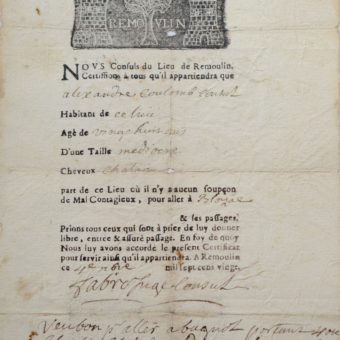 REMOULIN
NOVS Consuls du Lieu de Remoulin,
Certifions à tous qu'il appartiendra que
alexandre coulomb consul
Habitant de ce lieu
Agé de vingt huit ans
D'une Taille mediocre
Cheveux chatain
part de ce Lieu où il n'y a aucun soupçon
de Mal Contagieux, pour aller à
& ses passages.
Prions tous ceux qui sont à prier de luy donner
libre, entrée & assuré passage. En foy de quoy
Nous luy avons accordé le present Certificat
pour servir ainsi qu'il appartiendra. A Remoulin
ce 4e mil sept cens vingt
Consul
Veu bon p aller a